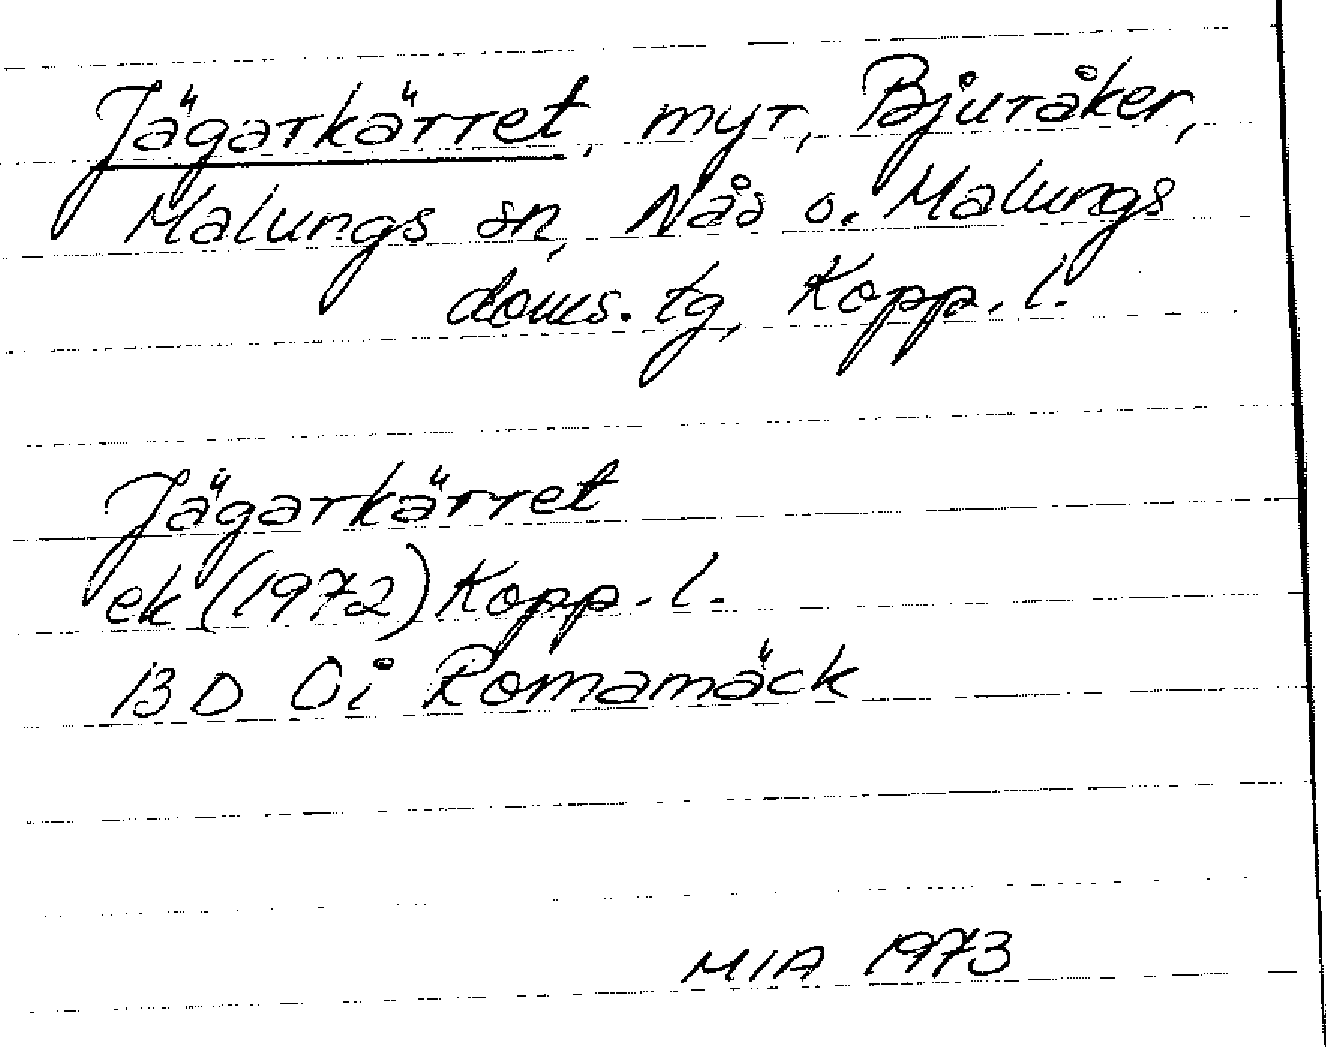 Jägarkärret, myr, Bjuråker,
Malungs sn, Nås o. Malungs
doms. tg, Kopp. l.
Jägarkärret
ek (1972) Kopp. l.
13 D 0i Romamäck
MIA 1973